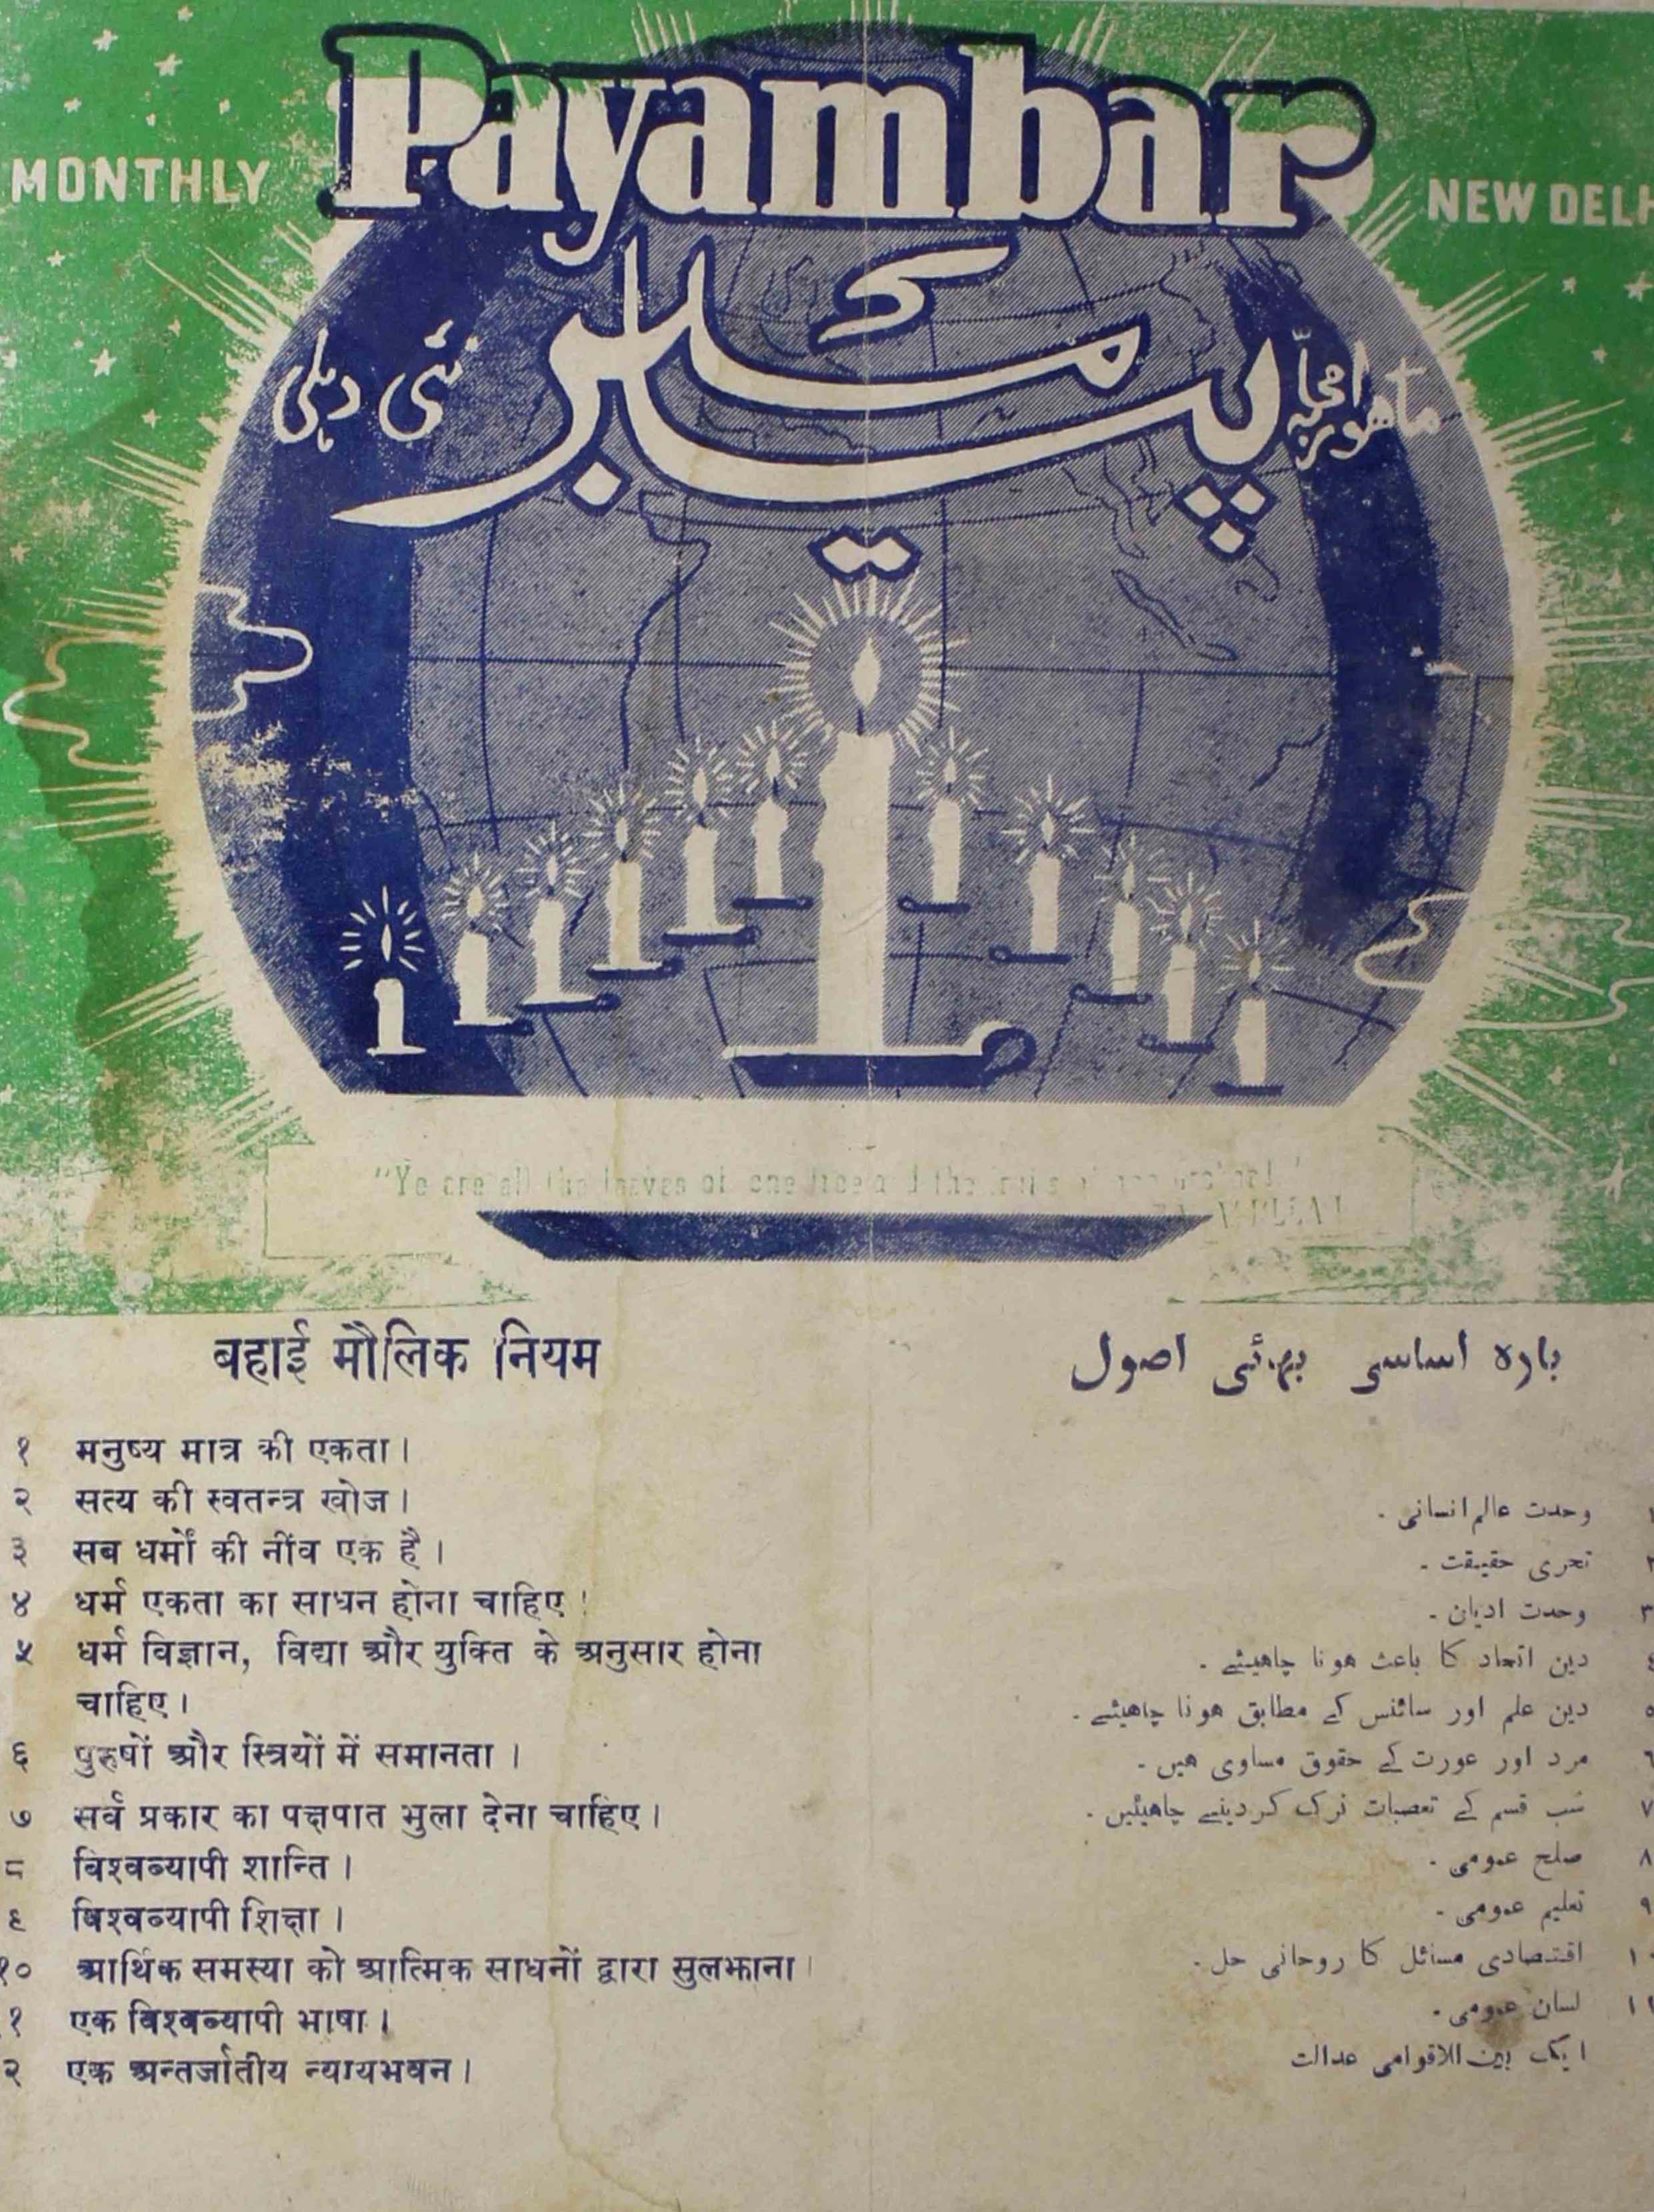 Payambar
MONTHLY
NEW DELH
پیامبر
ماهوار مجلّہ
نئی دہلی
"Ye are all the leaves of one tree
बहाई मौलिक नियम
१ मनुष्य मात्र की एकता।
२ सत्य की स्वतन्त्र खोज।
३ सब धर्मों की नींव एक है।
४ धर्म एकता का साधन होना चाहिए।
५ धर्म विज्ञान, विद्या और युक्ति के अनुसार होना
चाहिए।
६ पुरुषों और स्त्रियों में समानता।
७ सर्व प्रकार का पक्षपात भुला देना चाहिए।
८ विश्वव्यापी शान्ति।
९ विश्वव्यापी शिक्षा।
१० आर्थिक समस्या को आत्मिक साधनों द्वारा सुलझाना।
१ एक विश्वव्यापी भाषा।
२ एक अन्तर्जातीय न्यायभवन।
بارہ اساسی بہائی اصول
۱ وحدت عالم انسانی ۔
۲ تحری حقیقت ۔
۳ وحدت ادیان ۔
٤ دین اتحاد کا باعث ہونا چاہیئے ۔
٥ دین علم اور سائنس کے مطابق ہونا چاہیئے ۔
٦ مرد اور عورت کے حقوق مساوی ہیں ۔
۷ سب قسم کے تعصبات ترک کر دینے چاہیئیں ۔
۸ صلح عمومی ۔
۹ تعلیم عمومی ۔
۱۰ اقتصادی مسائل کا روحانی حل ۔
۱۱ لسان عمومی ۔
ایک بین الاقوامی عدالت